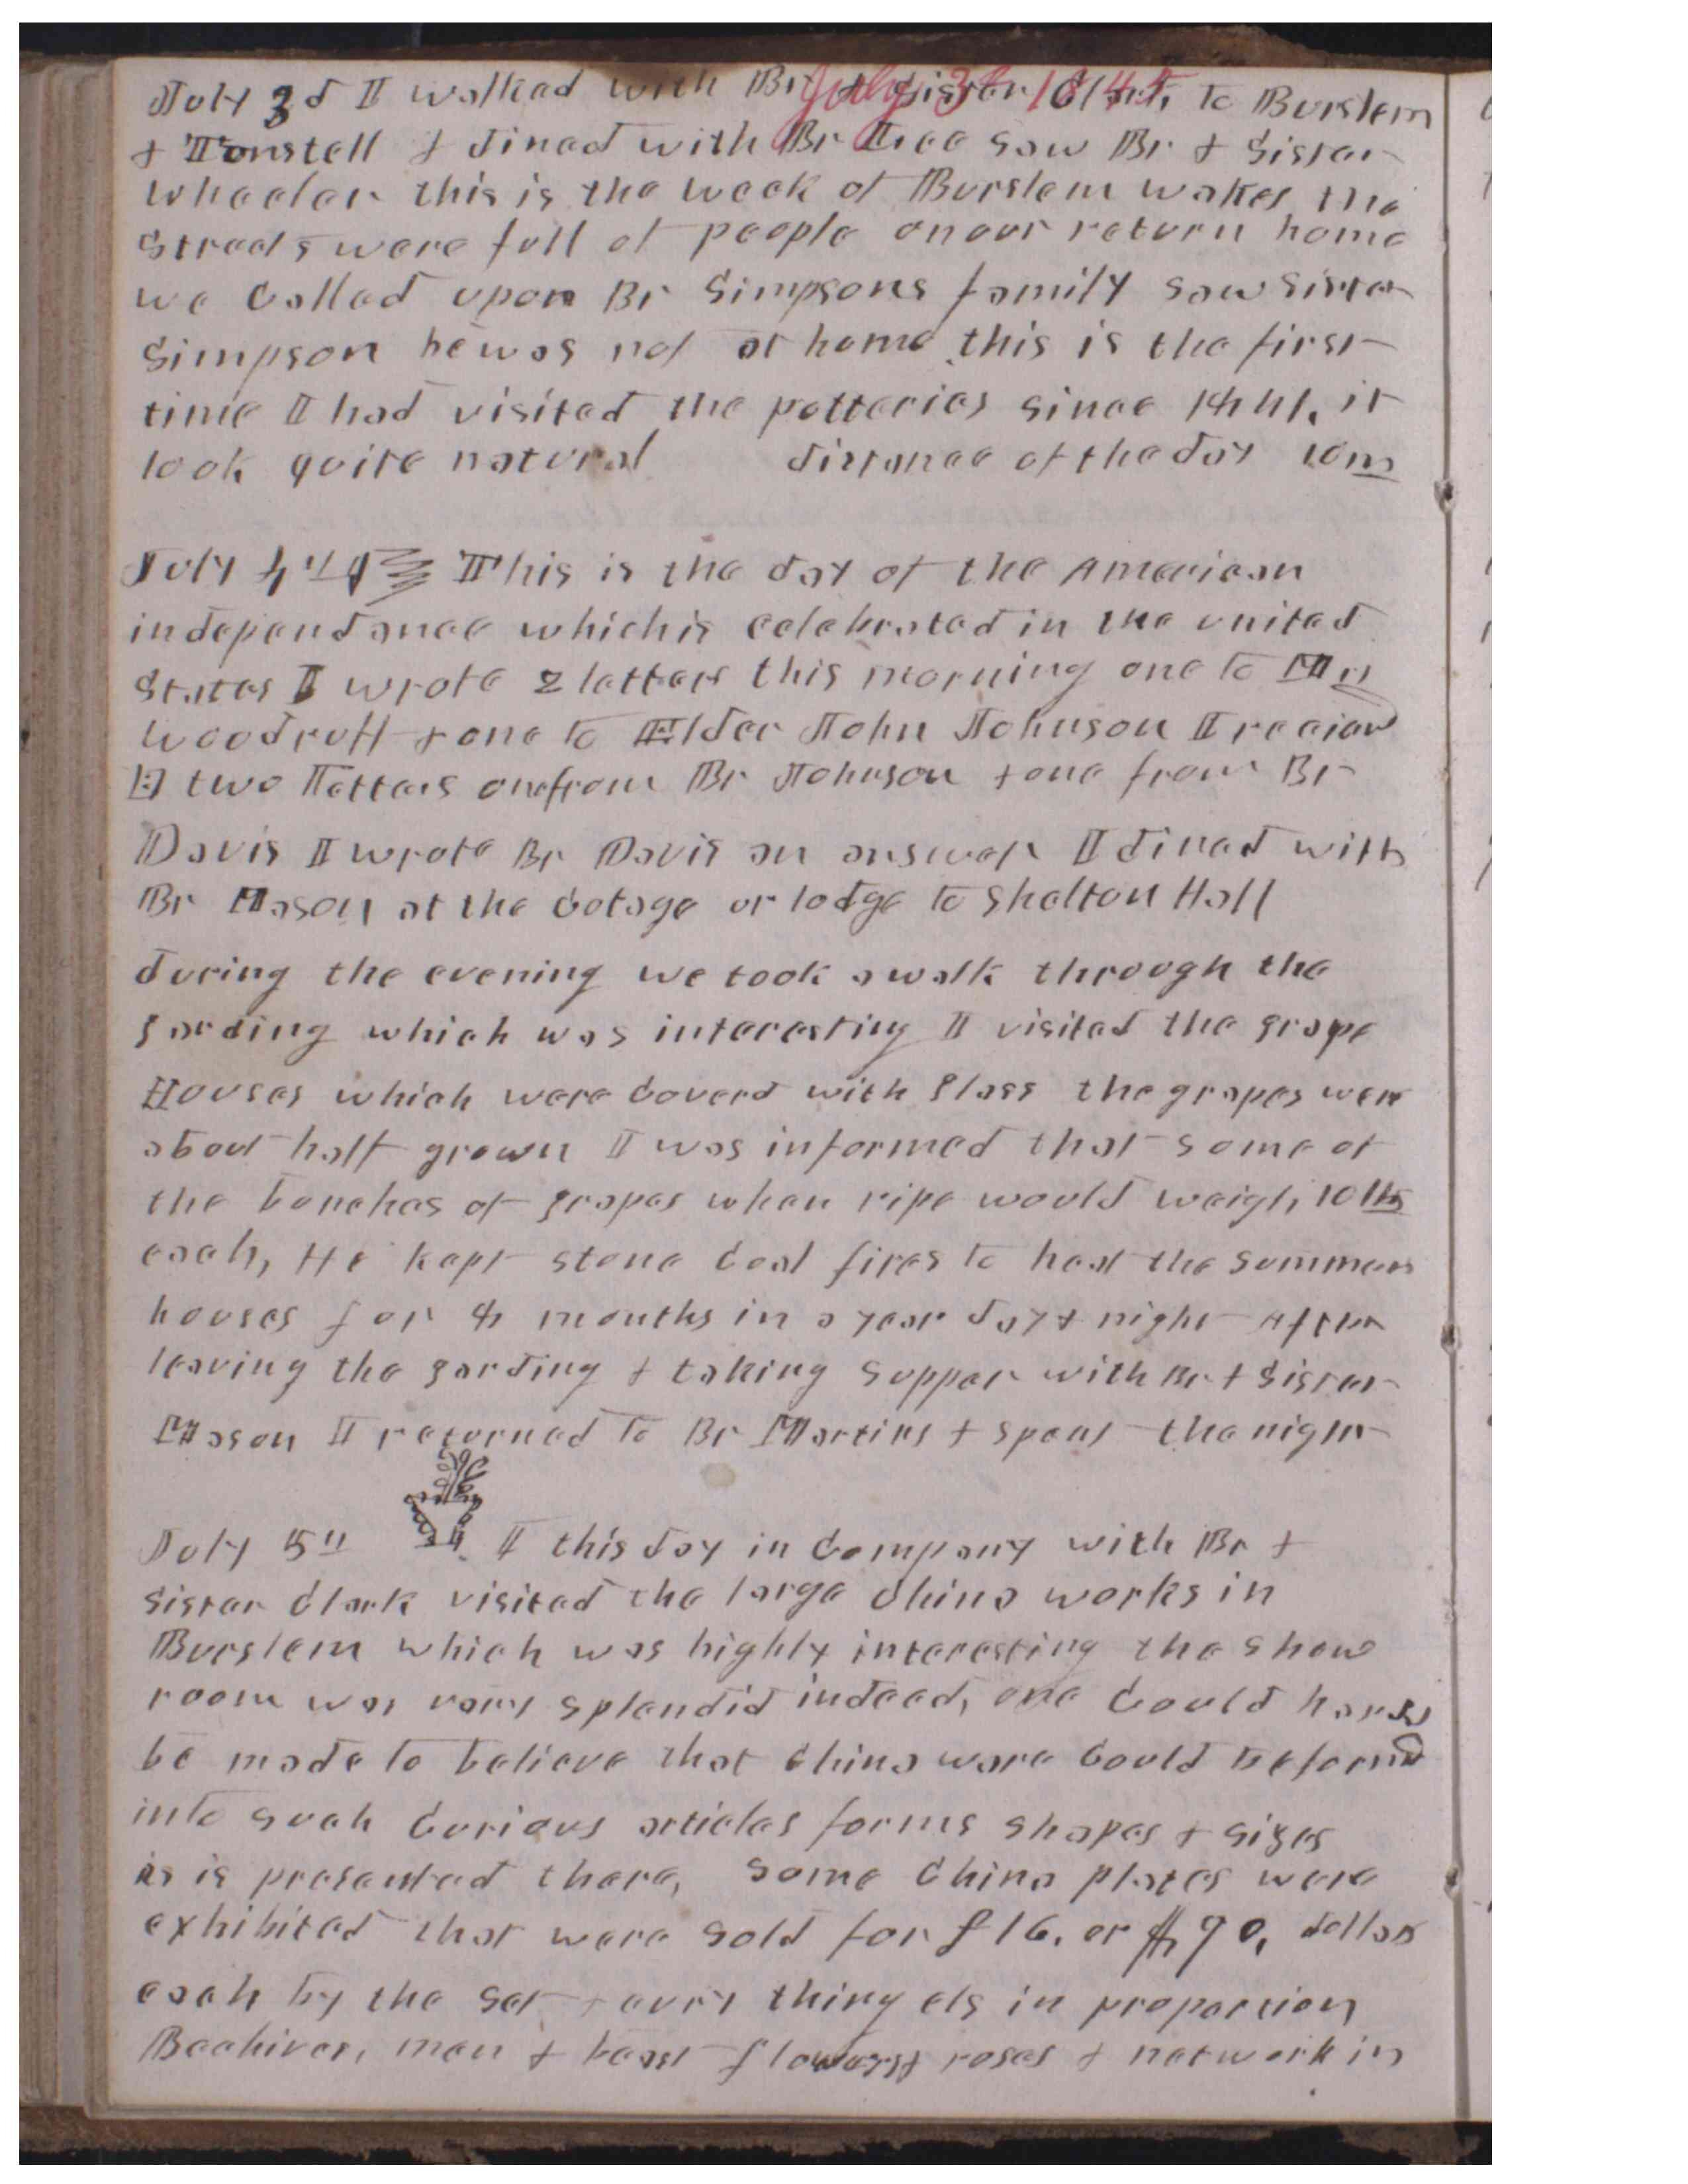 July 3d I walked with Br & Sister Clark to Burslem
July 3d 1845
& Tonstell & dined with Br Lree saw Br & Sister
Wheeler this is the week of Burslem wakes the
Streets were full of people on our return home
we Called upon Br Simpsons family saw Sister
Simpson he was not at home this is the first
time I had visited the potteries since 1841. it
look quite natural distance of the day 10m
July 4th This is the day of the American
independance which is celebrated in the united
States I wrote 2 letters this morning one to Mrs
Woodruff & one to Elder John Johnson I reciev
ed two Letters one from Br Johnson & one from Br
Davis I wrote Br Davis an answer I dined with
Br Mason at the Cotage or lodge to Shelton Hall
during the evening we took a walk through the
garding which was interesting I visited the grape
Houses which were Coverd with glass the grapes were
about half grown I was informed that some of
the bunches of grapes when ripe would weigh 10 lbs
each, He kept stone Coal fires to heat the summer
houses for 4 months in a year day & night After
leaving the garding & taking Supper with Br & Sister
Mason I returned to Br Martins & spent the night
July 5th I this day in Company with Br &
Sister Clark visited the large China works in
Burslem which was highly interesting the show
room was vary splendid indeed, one Could hardly
be made to believe that China ware Could be formd
into such Curious articles forms shapes & sizes
as is presented there, Some China plates were
exhibited that were sold for £16. or $90, dollars
each by the set & evry thing els in proportion
Beehives, men & beast flowers & roses & network in